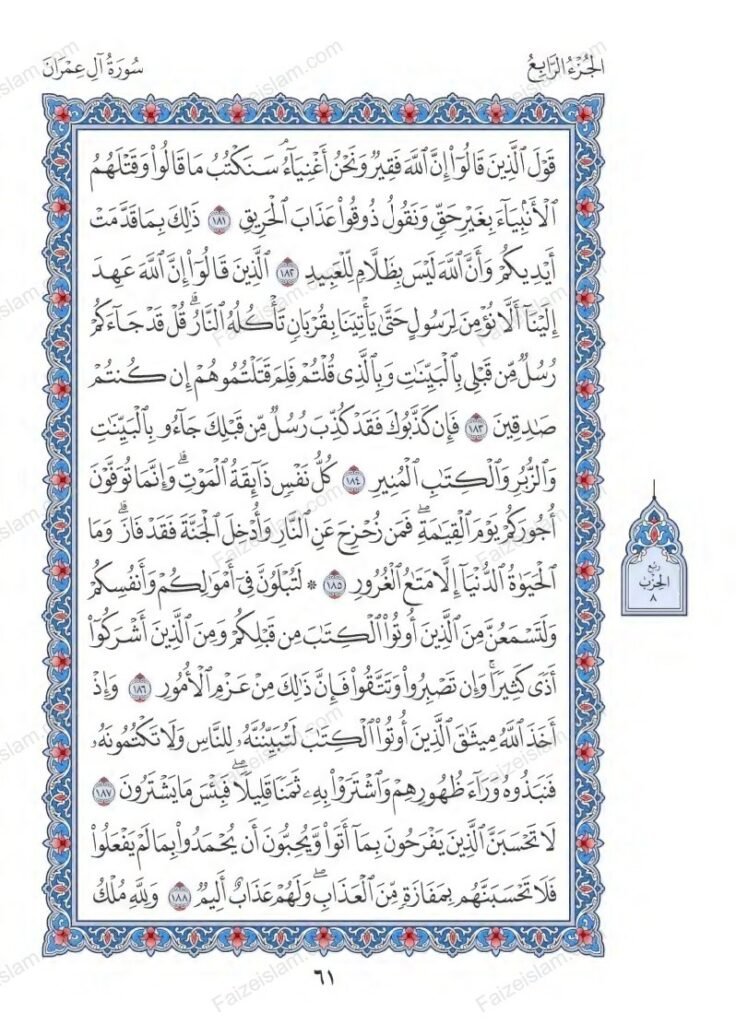 الجُزْءُ الرَّابِعُ
سُورَةُ آلِ عِمْرَانَ
قَوْلَ ٱلَّذِينَ قَالُوٓا۟ إِنَّ ٱللَّهَ فَقِيرٌ وَنَحْنُ أَغْنِيَآءُ ۘ سَنَكْتُبُ مَا قَالُوا۟ وَقَتْلَهُمُ
ٱلْأَنۢبِيَآءَ بِغَيْرِ حَقٍّ وَنَقُولُ ذُوقُوا۟ عَذَابَ ٱلْحَرِيقِ ١٨١ ذَٰلِكَ بِمَا قَدَّمَتْ
أَيْدِيكُمْ وَأَنَّ ٱللَّهَ لَيْسَ بِظَلَّامٍ لِّلْعَبِيدِ ١٨٢ ٱلَّذِينَ قَالُوٓا۟ إِنَّ ٱللَّهَ عَهِدَ
إِلَيْنَآ أَلَّا نُؤْمِنَ لِرَسُولٍ حَتَّىٰ يَأْتِيَنَا بِقُرْبَانٍ تَأْكُلُهُ ٱلنَّارُ ۗ قُلْ قَدْ جَآءَكُمْ
رُسُلٌ مِّن قَبْلِى بِٱلْبَيِّنَٰتِ وَبِٱلَّذِى قُلْتُمْ فَلِمَ قَتَلْتُمُوهُمْ إِن كُنتُمْ
صَٰدِقِينَ ١٨٣ فَإِن كَذَّبُوكَ فَقَدْ كُذِّبَ رُسُلٌ مِّن قَبْلِكَ جَآءُو بِٱلْبَيِّنَٰتِ
وَٱلزُّبُرِ وَٱلْكِتَٰبِ ٱلْمُنِيرِ ١٨٤ كُلُّ نَفْسٍ ذَآئِقَةُ ٱلْمَوْتِ ۗ وَإِنَّمَا تُوَفَّوْنَ
أُجُورَكُمْ يَوْمَ ٱلْقِيَٰمَةِ ۖ فَمَن زُحْزِحَ عَنِ ٱلنَّارِ وَأُدْخِلَ ٱلْجَنَّةَ فَقَدْ فَازَ ۗ وَمَا
ٱلْحَيَوٰةُ ٱلدُّنْيَآ إِلَّا مَتَٰعُ ٱلْغُرُورِ ١٨٥ * لَتُبْلَوُنَّ فِىٓ أَمْوَٰلِكُمْ وَأَنفُسِكُمْ
وَلَتَسْمَعُنَّ مِنَ ٱلَّذِينَ أُوتُوا۟ ٱلْكِتَٰبَ مِن قَبْلِكُمْ وَمِنَ ٱلَّذِينَ أَشْرَكُوٓا۟
أَذًى كَثِيرًا ۚ وَإِن تَصْبِرُوا۟ وَتَتَّقُوا۟ فَإِنَّ ذَٰلِكَ مِنْ عَزْمِ ٱلْأُمُورِ ١٨٦ وَإِذْ
أَخَذَ ٱللَّهُ مِيثَٰقَ ٱلَّذِينَ أُوتُوا۟ ٱلْكِتَٰبَ لَتُبَيِّنُنَّهُۥ لِلنَّاسِ وَلَا تَكْتُمُونَهُۥ
فَنَبَذُوهُ وَرَآءَ ظُهُورِهِمْ وَٱشْتَرَوْا۟ بِهِۦ ثَمَنًا قَلِيلًا ۖ فَبِئْسَ مَا يَشْتَرُونَ ١٨٧
لَا تَحْسَبَنَّ ٱلَّذِينَ يَفْرَحُونَ بِمَآ أَتَوا۟ وَّيُحِبُّونَ أَن يُحْمَدُوا۟ بِمَا لَمْ يَفْعَلُوا۟
فَلَا تَحْسَبَنَّهُم بِمَفَازَةٍ مِّنَ ٱلْعَذَابِ ۖ وَلَهُمْ عَذَابٌ أَلِيمٌ ١٨٨ وَلِلَّهِ مُلْكُ
ربع
الحزب
٨
٦١
Faizeislam.com